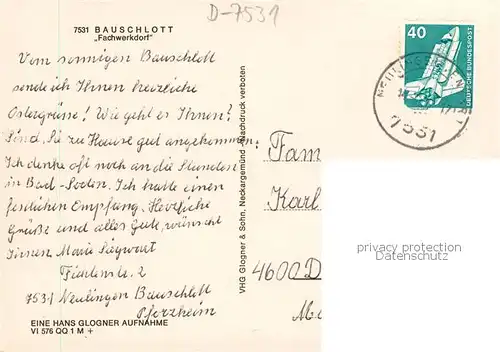 D-7531
7531 BAUSCHLOTT
„Fachwerkdorf"
Vom sonnigen Bauschlott
sende ich Ihnen herzliche
Ostergrüsse! Wie geht es Ihnen?
Sind Sie zu Hause gut angekommen.
Ich denke oft noch an die Stunden
in Bad-Soden. Ich hatte einen
festlichen Empfang. Herzliche
Grüße und alles Gute, wünscht
Ihnen Marie Siegwart
Fichtenstr. 2
7531 Neulingen Bauschlott
Pforzheim
EINE HANS GLOGNER AUFNAHME
VI 576 QQ 1 M +
VHG Glogner & Sohn, Neckargemünd / Nachdruck verboten
40
DEUTSCHE BUNDESPOST
7531
Fam
Karl
4600 D
privacy protection
Datenschutz